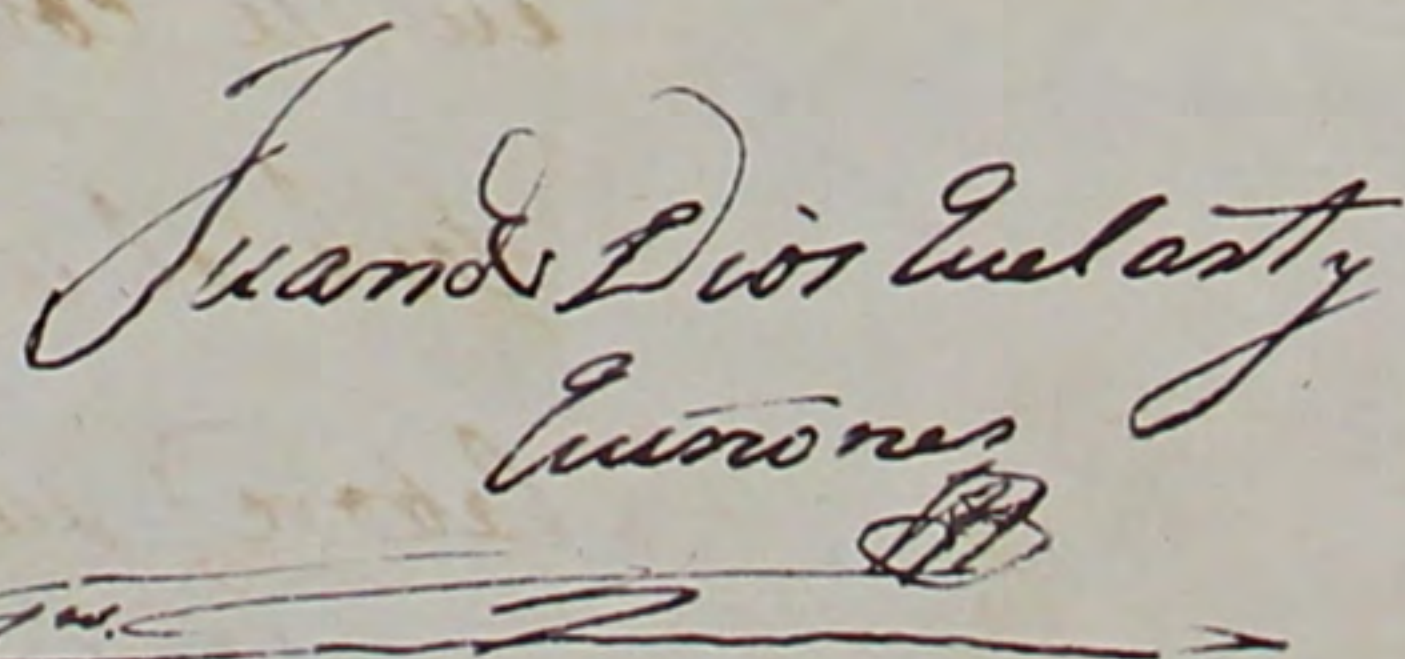 Juan de Dios Quelart y
Quiñones